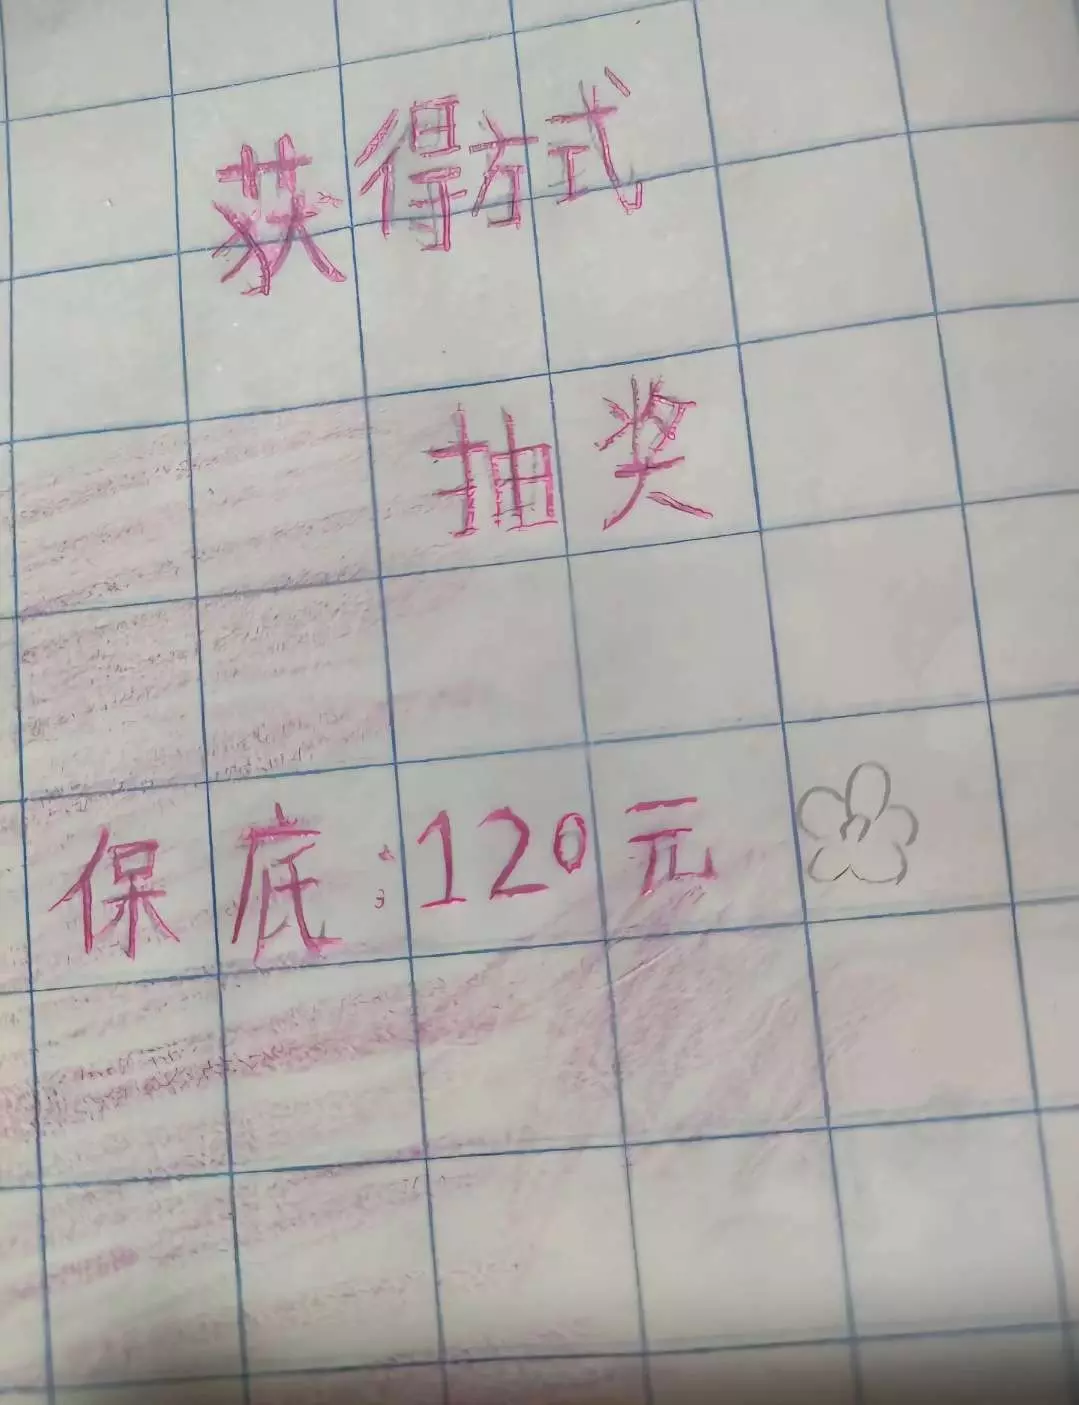 获得方式
抽奖
保底:120元